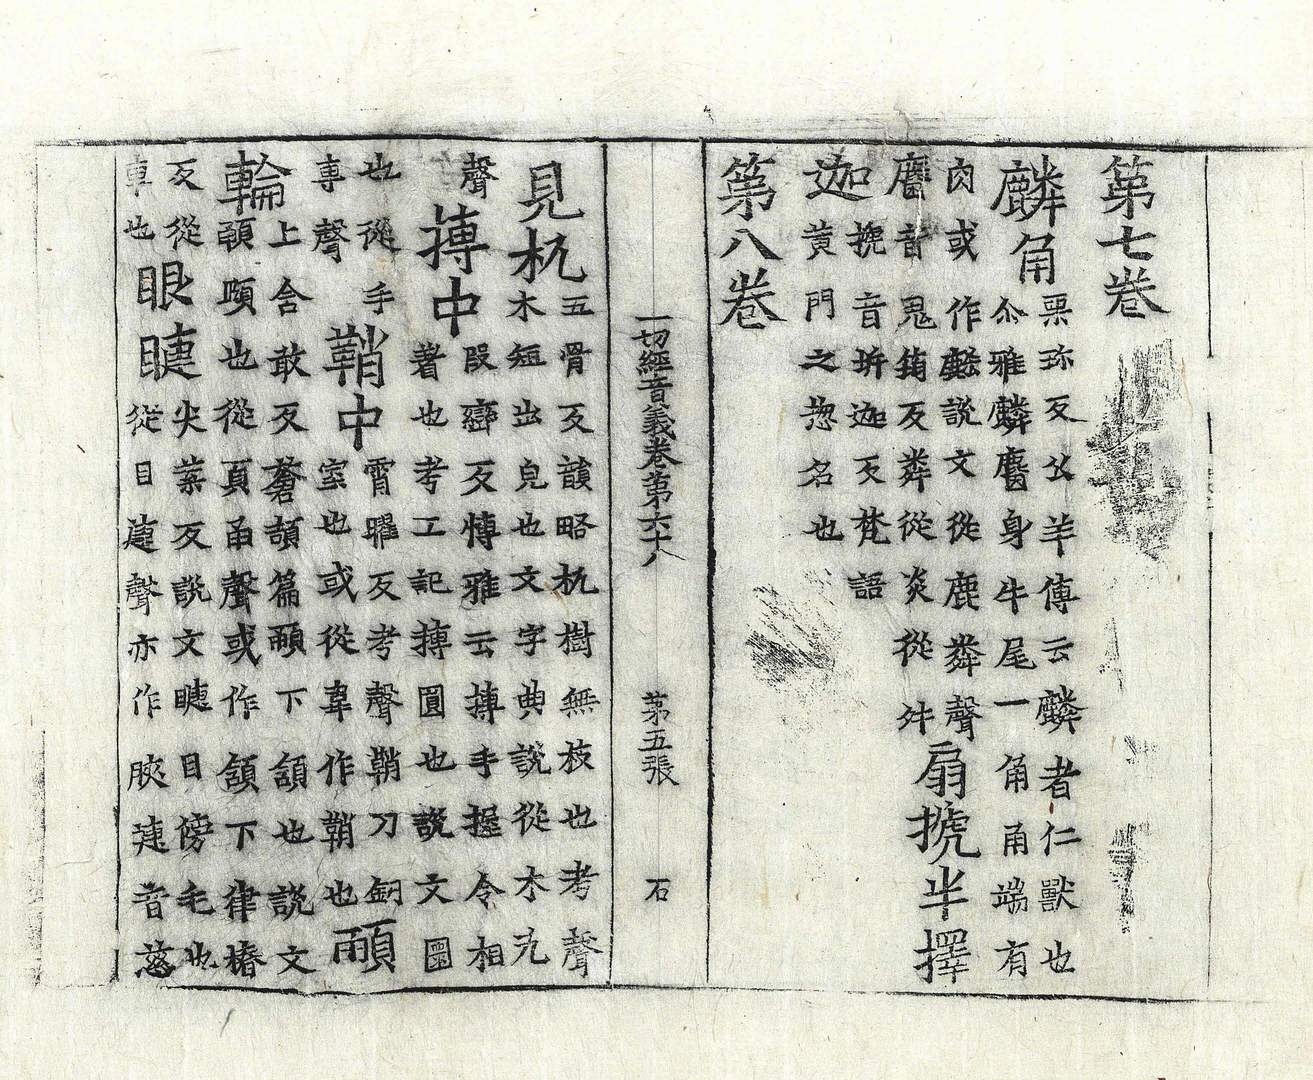 第七卷
麟角 栗珎反公羊傳云麟者仁獸也
尒雅麟麕身牛尾一角角端有
肉或作麒說文從鹿粦聲扇搋半擇
麕音君頵反粦從炎從舛
迦搋音坼迦反梵語
黄門之惣名也
第八卷
一切經音義卷第六十八 第五張 石
見杌五骨反韻略杌樹無枝也考聲
木短出皃也文字典說從木兀
聲摶中段巒反博雅云摶手握令相
著也考工記摶圓也說文圜
也從手專聲鞘中霄曜反考聲鞘刀劒
室也或從韋作鞘也頤
輪上含敢反蒼頡篇頤下頷也說文
頤也從頁圅聲或作頷下律椿
反從車也眼睫尖葉反說文睫目傍毛也
從目疌聲亦作䀹䓩音慈